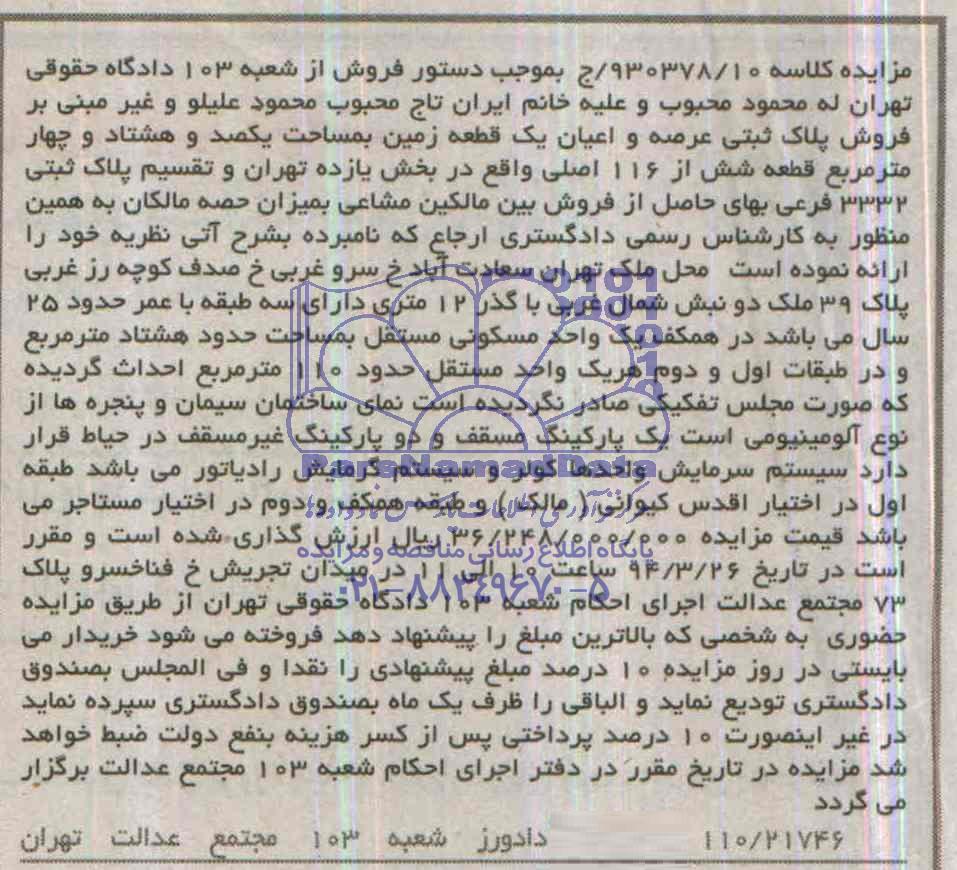 مزایده کلاسه ۹۳۰۳۷۸/۱۰/ج بموجب دستور فروش از شعبه ۱۰۳ دادگاه حقوقی
تهران له محمود محبوب و علیه خانم ایران تاج محبوب محمود علیلو و غیر مبنی بر
فروش پلاک ثبتی عرصه و اعیان یک قطعه زمین بمساحت یکصد و هشتاد و چهار
مترمربع قطعه شش از ۱۱۶ اصلی واقع در بخش یازده تهران و تقسیم پلاک ثبتی
۳۳۳۲ فرعی بهای حاصل از فروش بین مالکین مشاعی بمیزان حصه مالکان به همین
منظور به کارشناس رسمی دادگستری ارجاع که نامبرده بشرح آتی نظریه خود را
ارائه نموده است محل ملک تهران سعادت آباد خ سرو غربی خ صدف کوچه رز غربی
پلاک ۳۹ ملک دو نبش شمال غربی با گذر ۱۲ متری دارای سه طبقه با عمر حدود ۲۵
سال می باشد در همکف یک واحد مسکونی مستقل بمساحت حدود هشتاد مترمربع
و در طبقات اول و دوم هریک واحد مستقل حدود ۱۱۰ مترمربع احداث گردیده
که صورت مجلس تفکیکی صادر نگردیده است نمای ساختمان سیمان و پنجره ها از
نوع آلومینیومی است یک پارکینگ مسقف و دو پارکینگ غیرمسقف در حیاط قرار
دارد سیستم سرمایش واحدها کولر و سیستم گرمایش رادیاتور می باشد طبقه
ParsNamadData
اول در اختیار اقدس کیوانی (مالک) و طبقه همکف و دوم در اختیار مستاجر می
باشد قیمت مزایده ۳۶/۲۴۸/۰۰۰/۰۰۰ ریال ارزش گذاری شده است و مقرر
پایگاه اطلاع رسانی مناقصه و مزایده
است در تاریخ ۹۴/۳/۲۶ ساعت ۱۰ الی ۱۱ در میدان تجریش خ فناخسرو پلاک
۰۲۱-۸۸۳۴۹۶۷۰-۵
۷۳ مجتمع عدالت اجرای احکام شعبه ۱۰۳ دادگاه حقوقی تهران از طریق مزایده
حضوری به شخصی که بالاترین مبلغ را پیشنهاد دهد فروخته می شود خریدار می
بایستی در روز مزایده ۱۰ درصد مبلغ پیشنهادی را نقدا و فی المجلس بصندوق
دادگستری تودیع نماید و الباقی را ظرف یک ماه بصندوق دادگستری سپرده نماید
در غیر اینصورت ۱۰ درصد پرداختی پس از کسر هزینه بنفع دولت ضبط خواهد
شد مزایده در تاریخ مقرر در دفتر اجرای احکام شعبه ۱۰۳ مجتمع عدالت برگزار
می گردد
۱۱۰/۲۱۷۴۶ دادورز شعبه ۱۰۳ مجتمع عدالت تهران